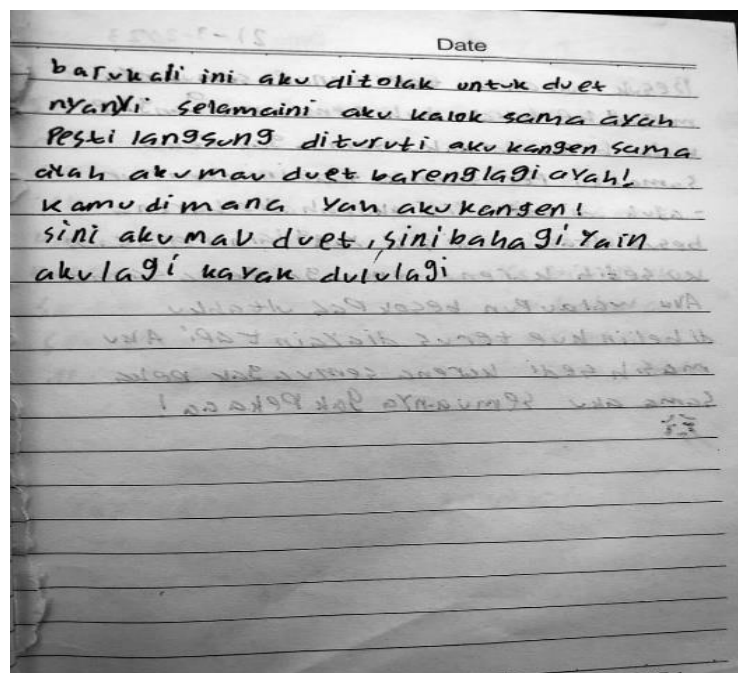 Date
barukali ini aku ditolak untuk duet
nyanyi selamaini aku kalok sama ayah
Pesti langsung dituruti aku kangen sama
ayah aku mau duet barenglagi ayah!
kamu dimana yah aku kangen!
sini aku mau duet, sini bahagi yain
aku lagi kayak dululagi